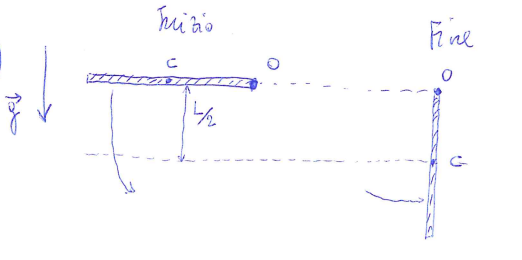 Inizio
Fine
C
O
O
L/2
g
C